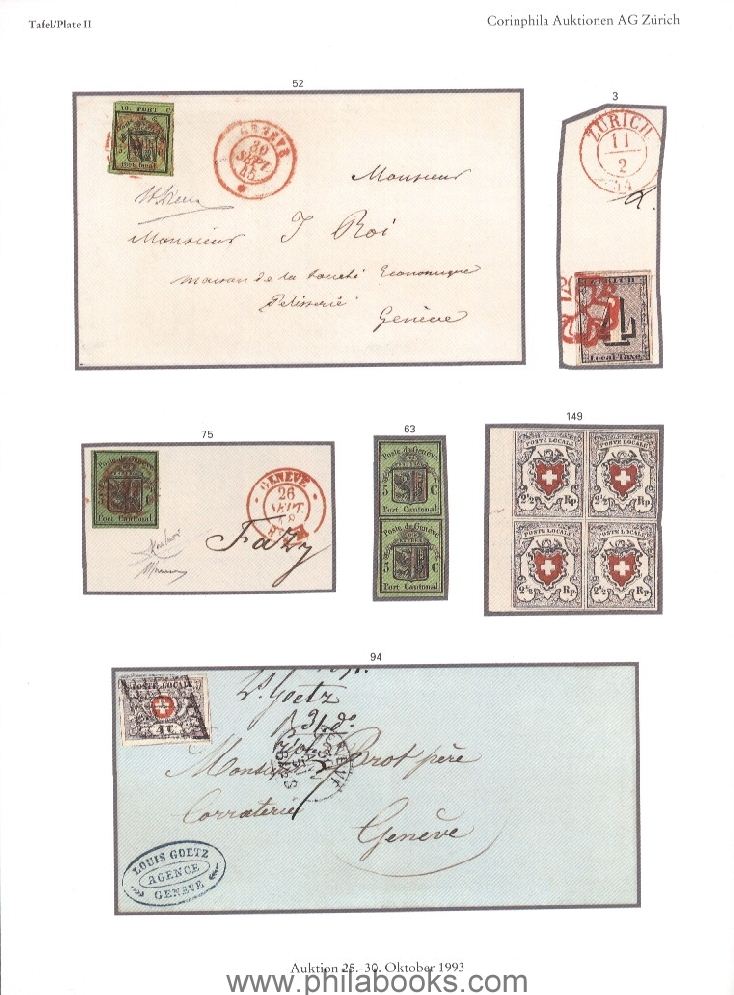 Tafel/Plate II
Corinphila Auktionen AG Zürich
52
10. PORT C
Port Local
GENÈVE
30
SEPT
45
Monsieur
Monsieur J Roi
maison de la Société Economique
Pelisserie
Genève
3
ZÜRICH
11
2
54
ZURICH
4
Local-Taxe.
75
Poste de Genève
5 C
Port Cantonal
GENÈVE
26
SEPT.
Fazy
63
Poste de Genève
5 C
Port Cantonal
Poste de Genève
5 C
Port Cantonal
149
POSTE LOCALE POSTE LOCALE
2½ Rp 2½ Rp
POSTE LOCALE POSTE LOCALE
2½ Rp 2½ Rp
94
POSTE LOCALE
4C
Ls Goetz
Monsieur Brot père
Corraterie
Genève
LOUIS GOETZ
AGENCE
GENÈVE
Auktion 25.-30. Oktober 1993
www.philabooks.com